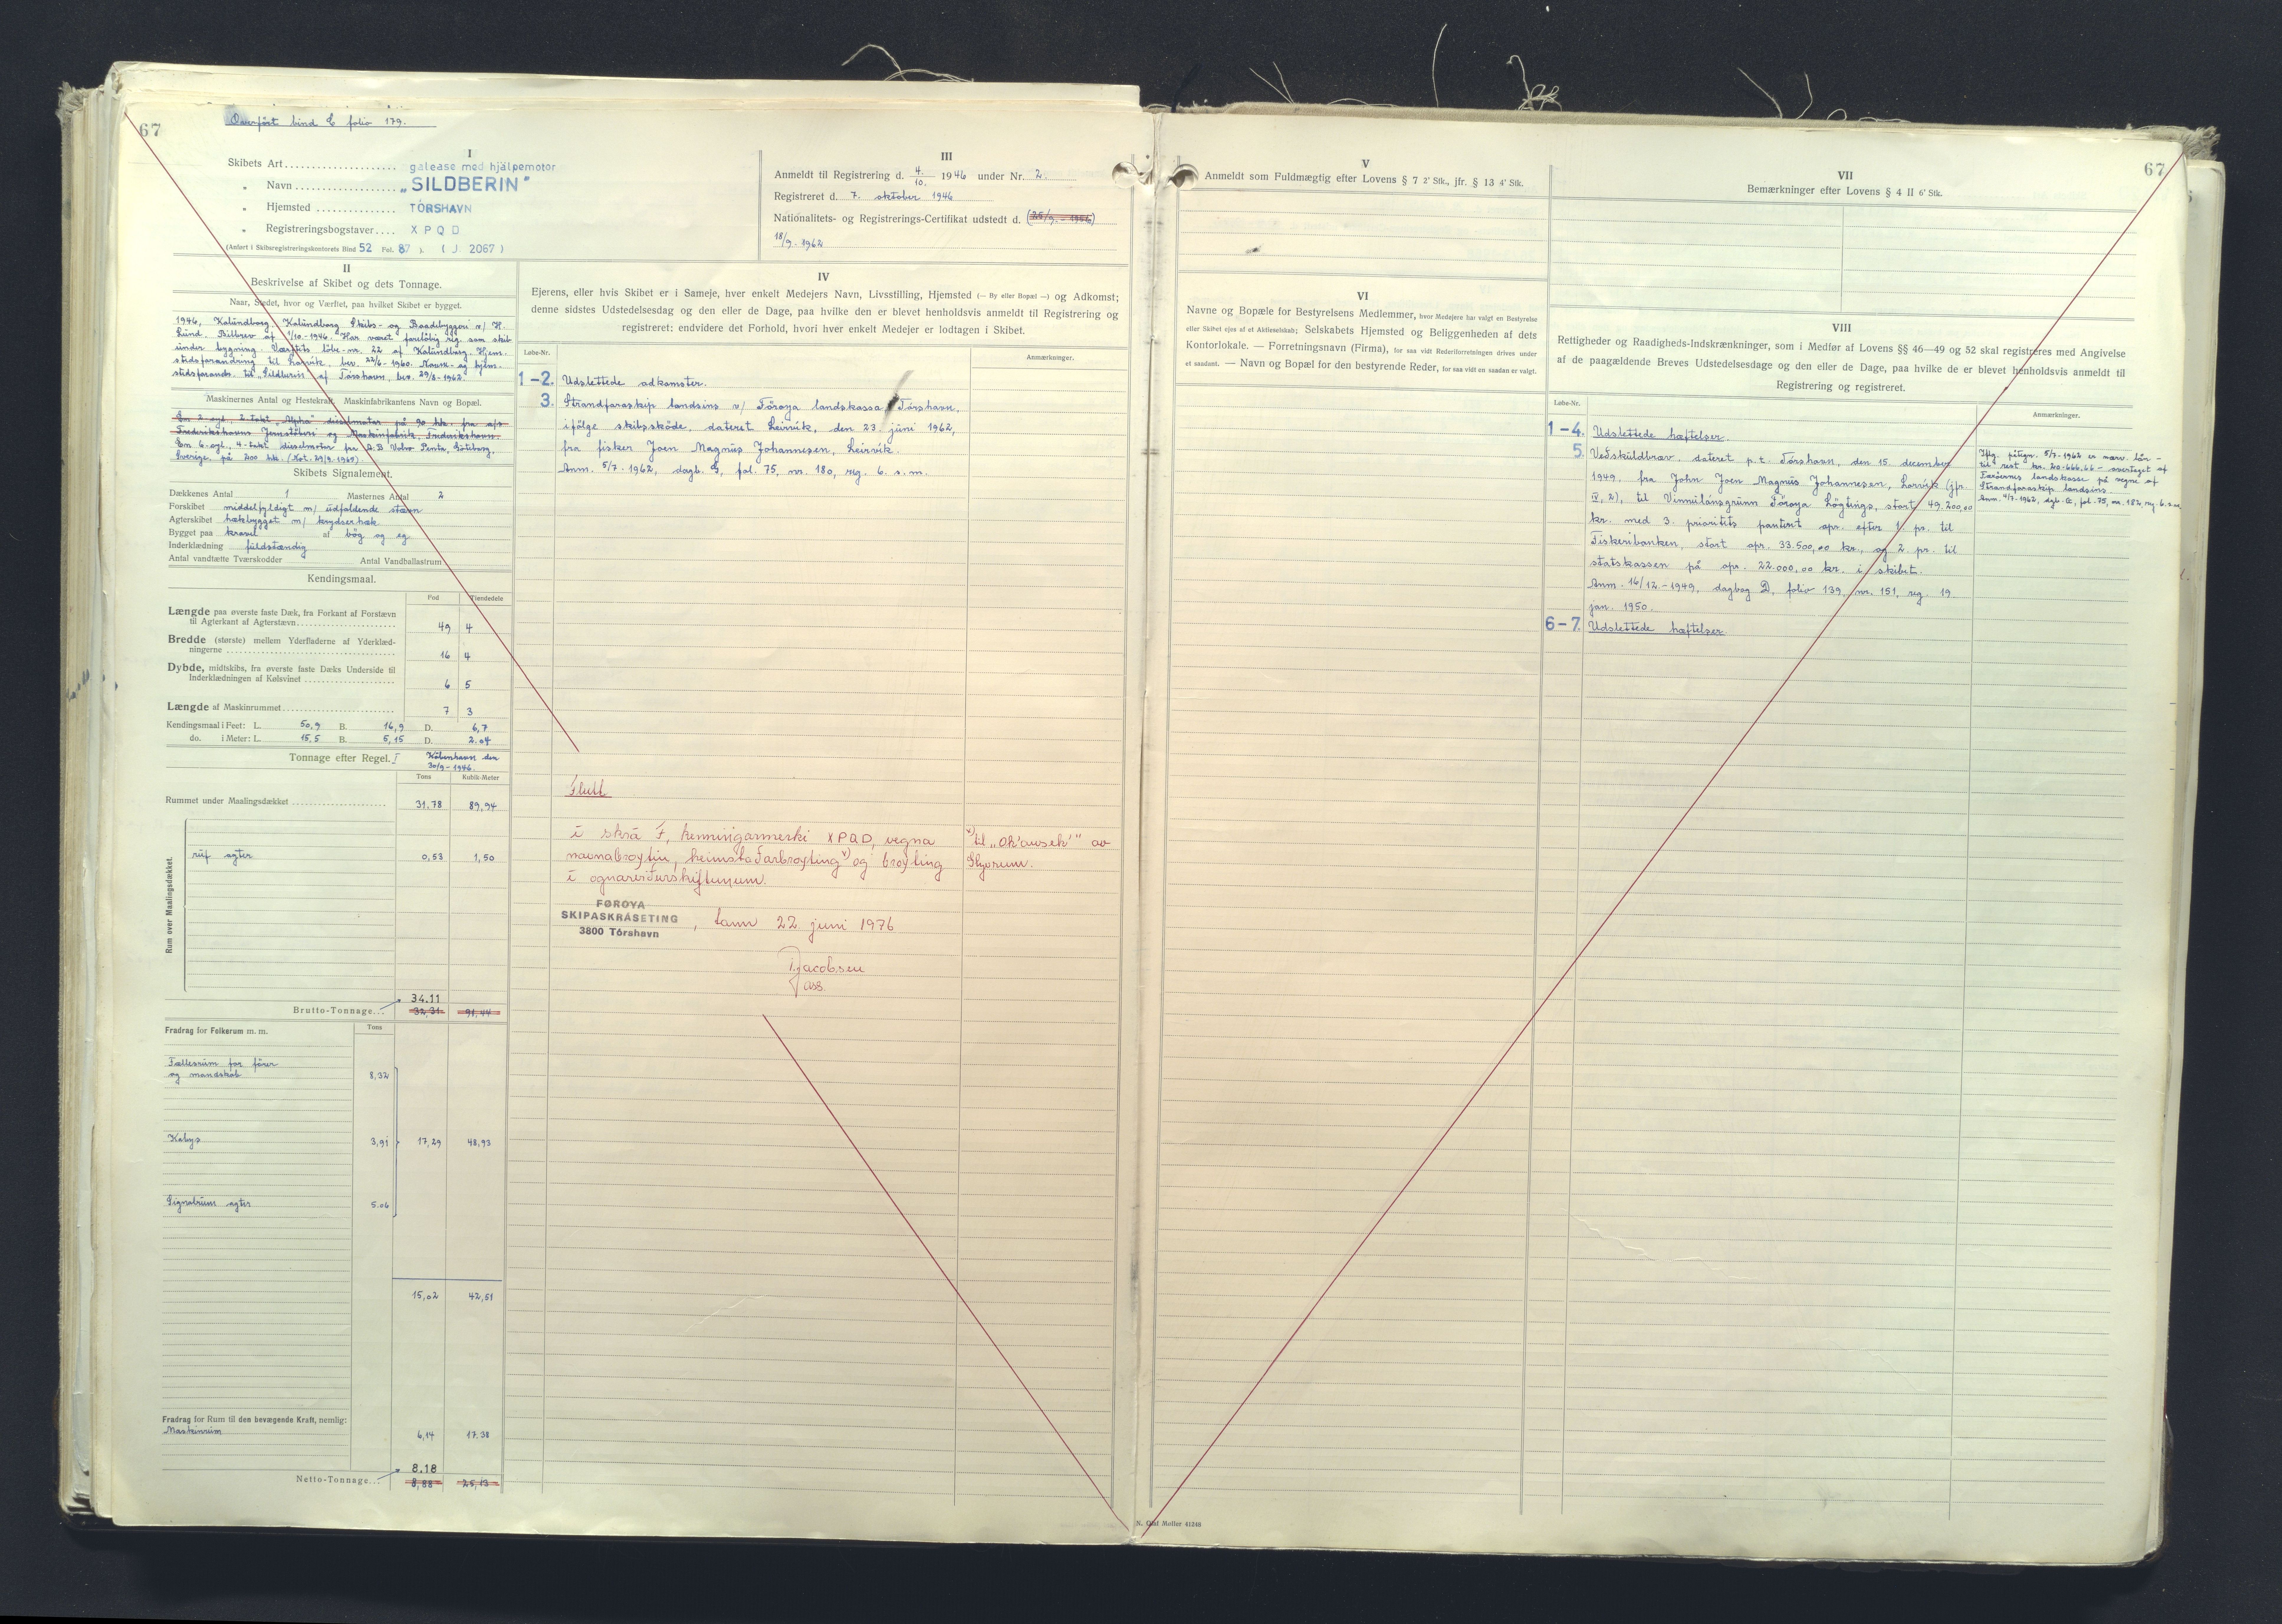 67
Overført bind E folio 179.
I
Skibets Art galease med hjälpemotor
„ Navn „SILDBERIN"
„ Hjemsted TÓRSHAVN
„ Registreringsbogstaver X P Q D
(Anført i Skibsregistreringskontorets Bind 52 Fol. 87 ). ( J 2067 )
III
Anmeldt til Registrering d. 4./10. 1946 under Nr. 2.
Registreret d. 7. oktober 1946
Nationalitets- og Registrerings-Certifikat udstedt d. (25/9.-1956)
18/9.-1962
II
Beskrivelse af Skibet og dets Tonnage.
Naar, Stedet, hvor og Værftet, paa hvilket Skibet er bygget.
1946, Kalundborg. Kalundborg Skibs- og Baadebyggeri v/ H.
Lund. Bilbrev af 1/10.-1946. Har været foreløbig reg. som skib
under bygning. Værftets løbe-nr. 22 af Kalundborg. Hjem-
stedsforandring til Lorvik, bev. 22/6-1960. Navne- og hjem-
stedsforandr. til „Sildberin" af Tórshavn, bev. 29/8-1962.
Maskinernes Antal og Hestekraft. Maskinfabrikantens Navn og Bopæl.
En 2-cyl. 2-takt „Alpha" dieselmotor på 90 hk. fra a/s
Frederikshavns Jernstøberi og Maskinfabrik, Frederikshavn.
En 6-cyl. 4-takt dieselmotor fra A.B Volvo Penta, Göteborg,
Sverige på 200 hk. (Not. 29/9.1969).
Skibets Signalement.
Dækkenes Antal 1 Masternes Antal 2
Forskibet middelfyldigt m/ udfaldende stævn
Agterskibet hækbygget m/ krydserhæk
Bygget paa kravel af bøg og eg
Inderklædning fuldstændig
Antal vandtætte Tværskodder Antal Vandballastrum
Kendingsmaal.
Fod Tiendedele
Længde paa øverste faste Dæk, fra Forkant af Forstævn
til Agterkant af Agterstævn 49 4
Bredde (største) mellem Yderfladerne af Yderklæd-
ningerne 16 4
Dybde, midtskibs, fra øverste faste Dæks Underside til
Inderklædningen af Kølsvinet 6 5
Længde af Maskinrummet 7 3
Kendingsmaal i Feet: L. 50,9 B. 16,9 D. 6,7
do. i Meter: L. 15,5 B. 5,15 D. 2.04
Tonnage efter Regel. I København den
30/9-1946.
Tons Kubik-Meter
Rummet under Maalingsdækket 31,78 89,94
Rum over Maalingsdækket.
ruf agter 0,53 1,50
34.11
Brutto-Tonnage... 32,31 91,44
Fradrag for Folkerum m. m. Tons
Fællesrum for fører
og mandskab 8,32
Kabys 3,91 17,29 48,93
Signalrum agter 5.06
15,02 42,51
Fradrag for Rum til den bevægende Kraft, nemlig:
Maskinrum 6,14 17.38
8.18
Netto-Tonnage... 8,88 25,13
IV
Ejerens, eller hvis Skibet er i Sameje, hver enkelt Medejers Navn, Livsstilling, Hjemsted (— By eller Bopæl —) og Adkomst;
denne sidstes Udstedelsesdag og den eller de Dage, paa hvilke den er blevet henholdsvis anmeldt til Registrering og
registreret; endvidere det Forhold, hvori hver enkelt Medejer er lodtagen i Skibet.
Løbe-Nr. Anmærkninger.
1-2. Udslettede adkomster.
3. Strandfaraskip landsins v/ Føroya landskassa, Tórshavn,
ifølge skibsskøde, dateret Leirvík, den 23. juni 1962,
fra fisker Joen Magnus Johannesen, Leirvík.
Anm. 5/7-1962, dagb. G, fol. 75, nr. 180, reg. 6. s. m.
Flutt
í skrá F, kenningarmerki XPQD, vegna
navnabroytin, heimstaðarbroyting x) og broyting
í ognarviðurskiftunum.
x) til „Oh'ausek'" av
Skopun.
FØROYA
SKIPASKRÁSETING
3800 Tórshavn
, tann 22 juni 1976
Jacobsen
ass.
67
V
Anmeldt som Fuldmægtig efter Lovens § 7 2' Stk., jfr. § 13 4' Stk.
VI
Navne og Bopæle for Bestyrelsens Medlemmer, hvor Medejere har valgt en Bestyrelse
eller Skibet ejes af et Aktieselskab; Selskabets Hjemsted og Beliggenheden af dets
Kontorlokale. — Forretningsnavn (Firma), for saa vidt Rederiforretningen drives under
et saadant. — Navn og Bopæl for den bestyrende Reder, for saa vidt en saadan er valgt.
VII
Bemærkninger efter Lovens § 4 II 6' Stk.
VIII
Rettigheder og Raadigheds-Indskrænkninger, som i Medfør af Lovens §§ 46—49 og 52 skal registreres med Angivelse
af de paagældende Breves Udstedelsesdage og den eller de Dage, paa hvilke de er blevet henholdsvis anmeldt til
Registrering og registreret.
Løbe-Nr. Anmærkninger.
1-4. Udslettede hæftelser.
5. Veðskuldbrav, dateret p.t. Tórshavn, den 15. december
1949, fra John Joen Magnus Johannesen, Lorvík (jfr.
IV, 2), til Vinnulánsgrunn Føroya Løgtings, stort 49.200,00
kr. med 3. prioritets panteret opr. efter 1. pr. til
Fiskeribanken, stort opr. 33.500,00 kr., og 2. pr. til
statskassen på opr. 22.000,00 kr. i skibet.
Anm. 16/12.-1949, dagbog D, folio 139, nr. 151, reg. 19
jan. 1950.
Iflg. påtegn. 5/7-1962 er nærv. lån -
til rest kr. 20.666,66 - overtaget af
Færøernes landskasse på vegne af
Strandfaraskip landsins.
Anm. 4/7-1962, dgb. G, fol. 75, nr. 182, reg. 6. s.m.
6-7. Udslettede hæftelser.
N. Olaf Møller 41248